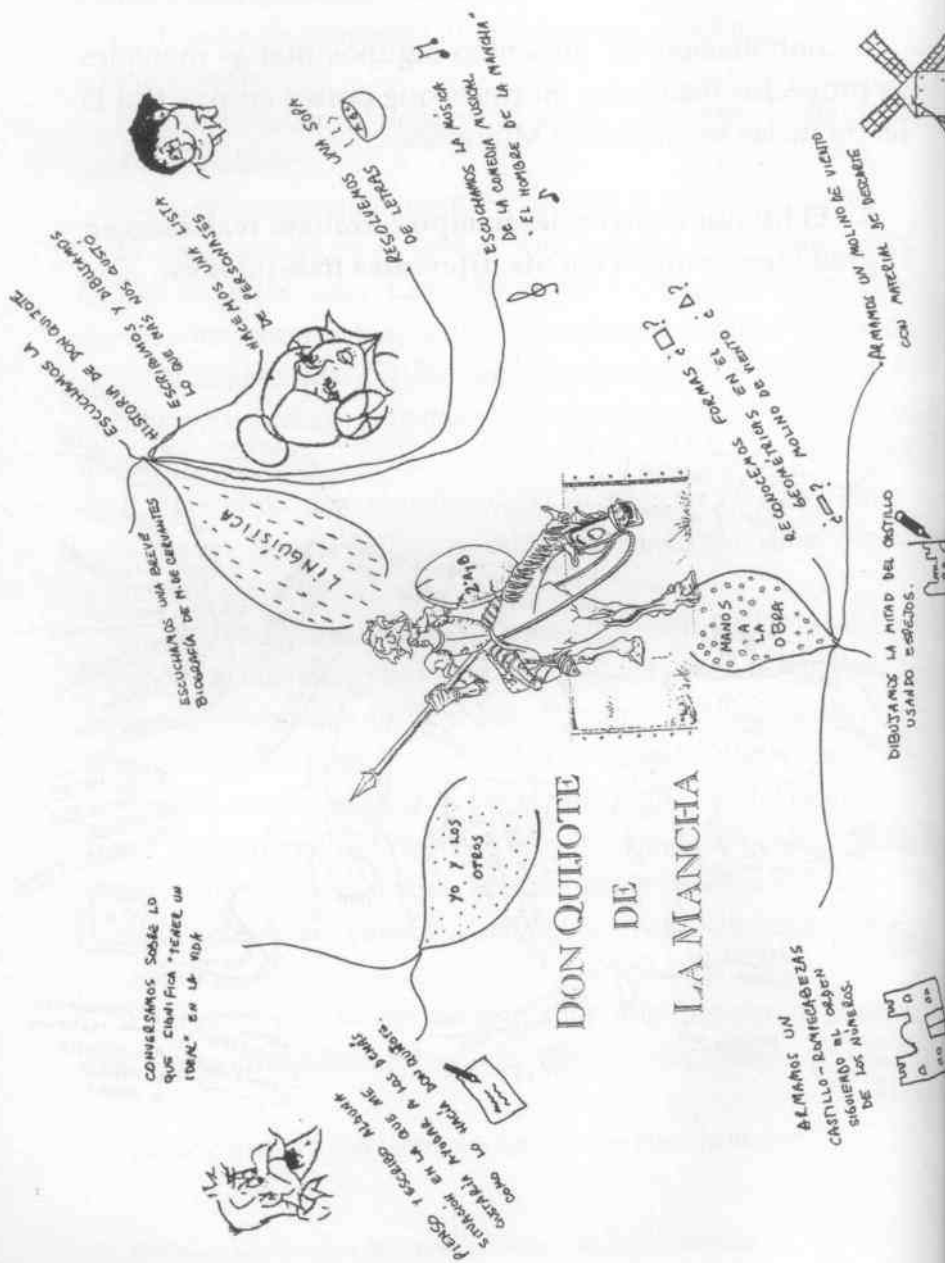 DON QUIJOTE
DE
LA MANCHA
2º AYB
LINGÜÍSTICA
ESCUCHAMOS UNA BREVE
BIOGRAFÍA DE M. DE CERVANTES
ESCUCHAMOS LA
HISTORIA DE DON QUIJOTE
ESCRIBIMOS Y DIBUJAMOS
LO QUE MAS NOS GUSTÓ.
HACEMOS UNA LISTA
DE PERSONAJES
RESOLVEMOS UNA SOPA
DE LETRAS
ESCUCHAMOS LA MÚSICA
DE LA COMEDIA MUSICAL
"EL HOMBRE DE LA MANCHA"
YO Y LOS
OTROS
CONVERSAMOS SOBRE LO
QUE SIGNIFICA "TENER UN
IDEAL" EN LA VIDA
PIENSO Y ESCRIBO ALGUNA
SITUACIÓN EN LA QUE ME
GUSTARÍA AYUDAR A LOS DEMÁS
COMO LO HACÍA DON QUIJOTE.
MANOS
A
LA
OBRA
RECONOCEMOS FORMAS ¿□?
GEOMÉTRICAS EN EL ¿△?
¿▭? MOLINO DE VIENTO
ARMAMOS UN MOLINO DE VIENTO
CON MATERIAL DE DESCARTE
DIBUJAMOS LA MITAD DEL CASTILLO
USANDO ESPEJOS.
ARMAMOS UN
CASTILLO-ROMPECABEZAS
SIGUIENDO EL ORDEN
DE LOS NÚMEROS.